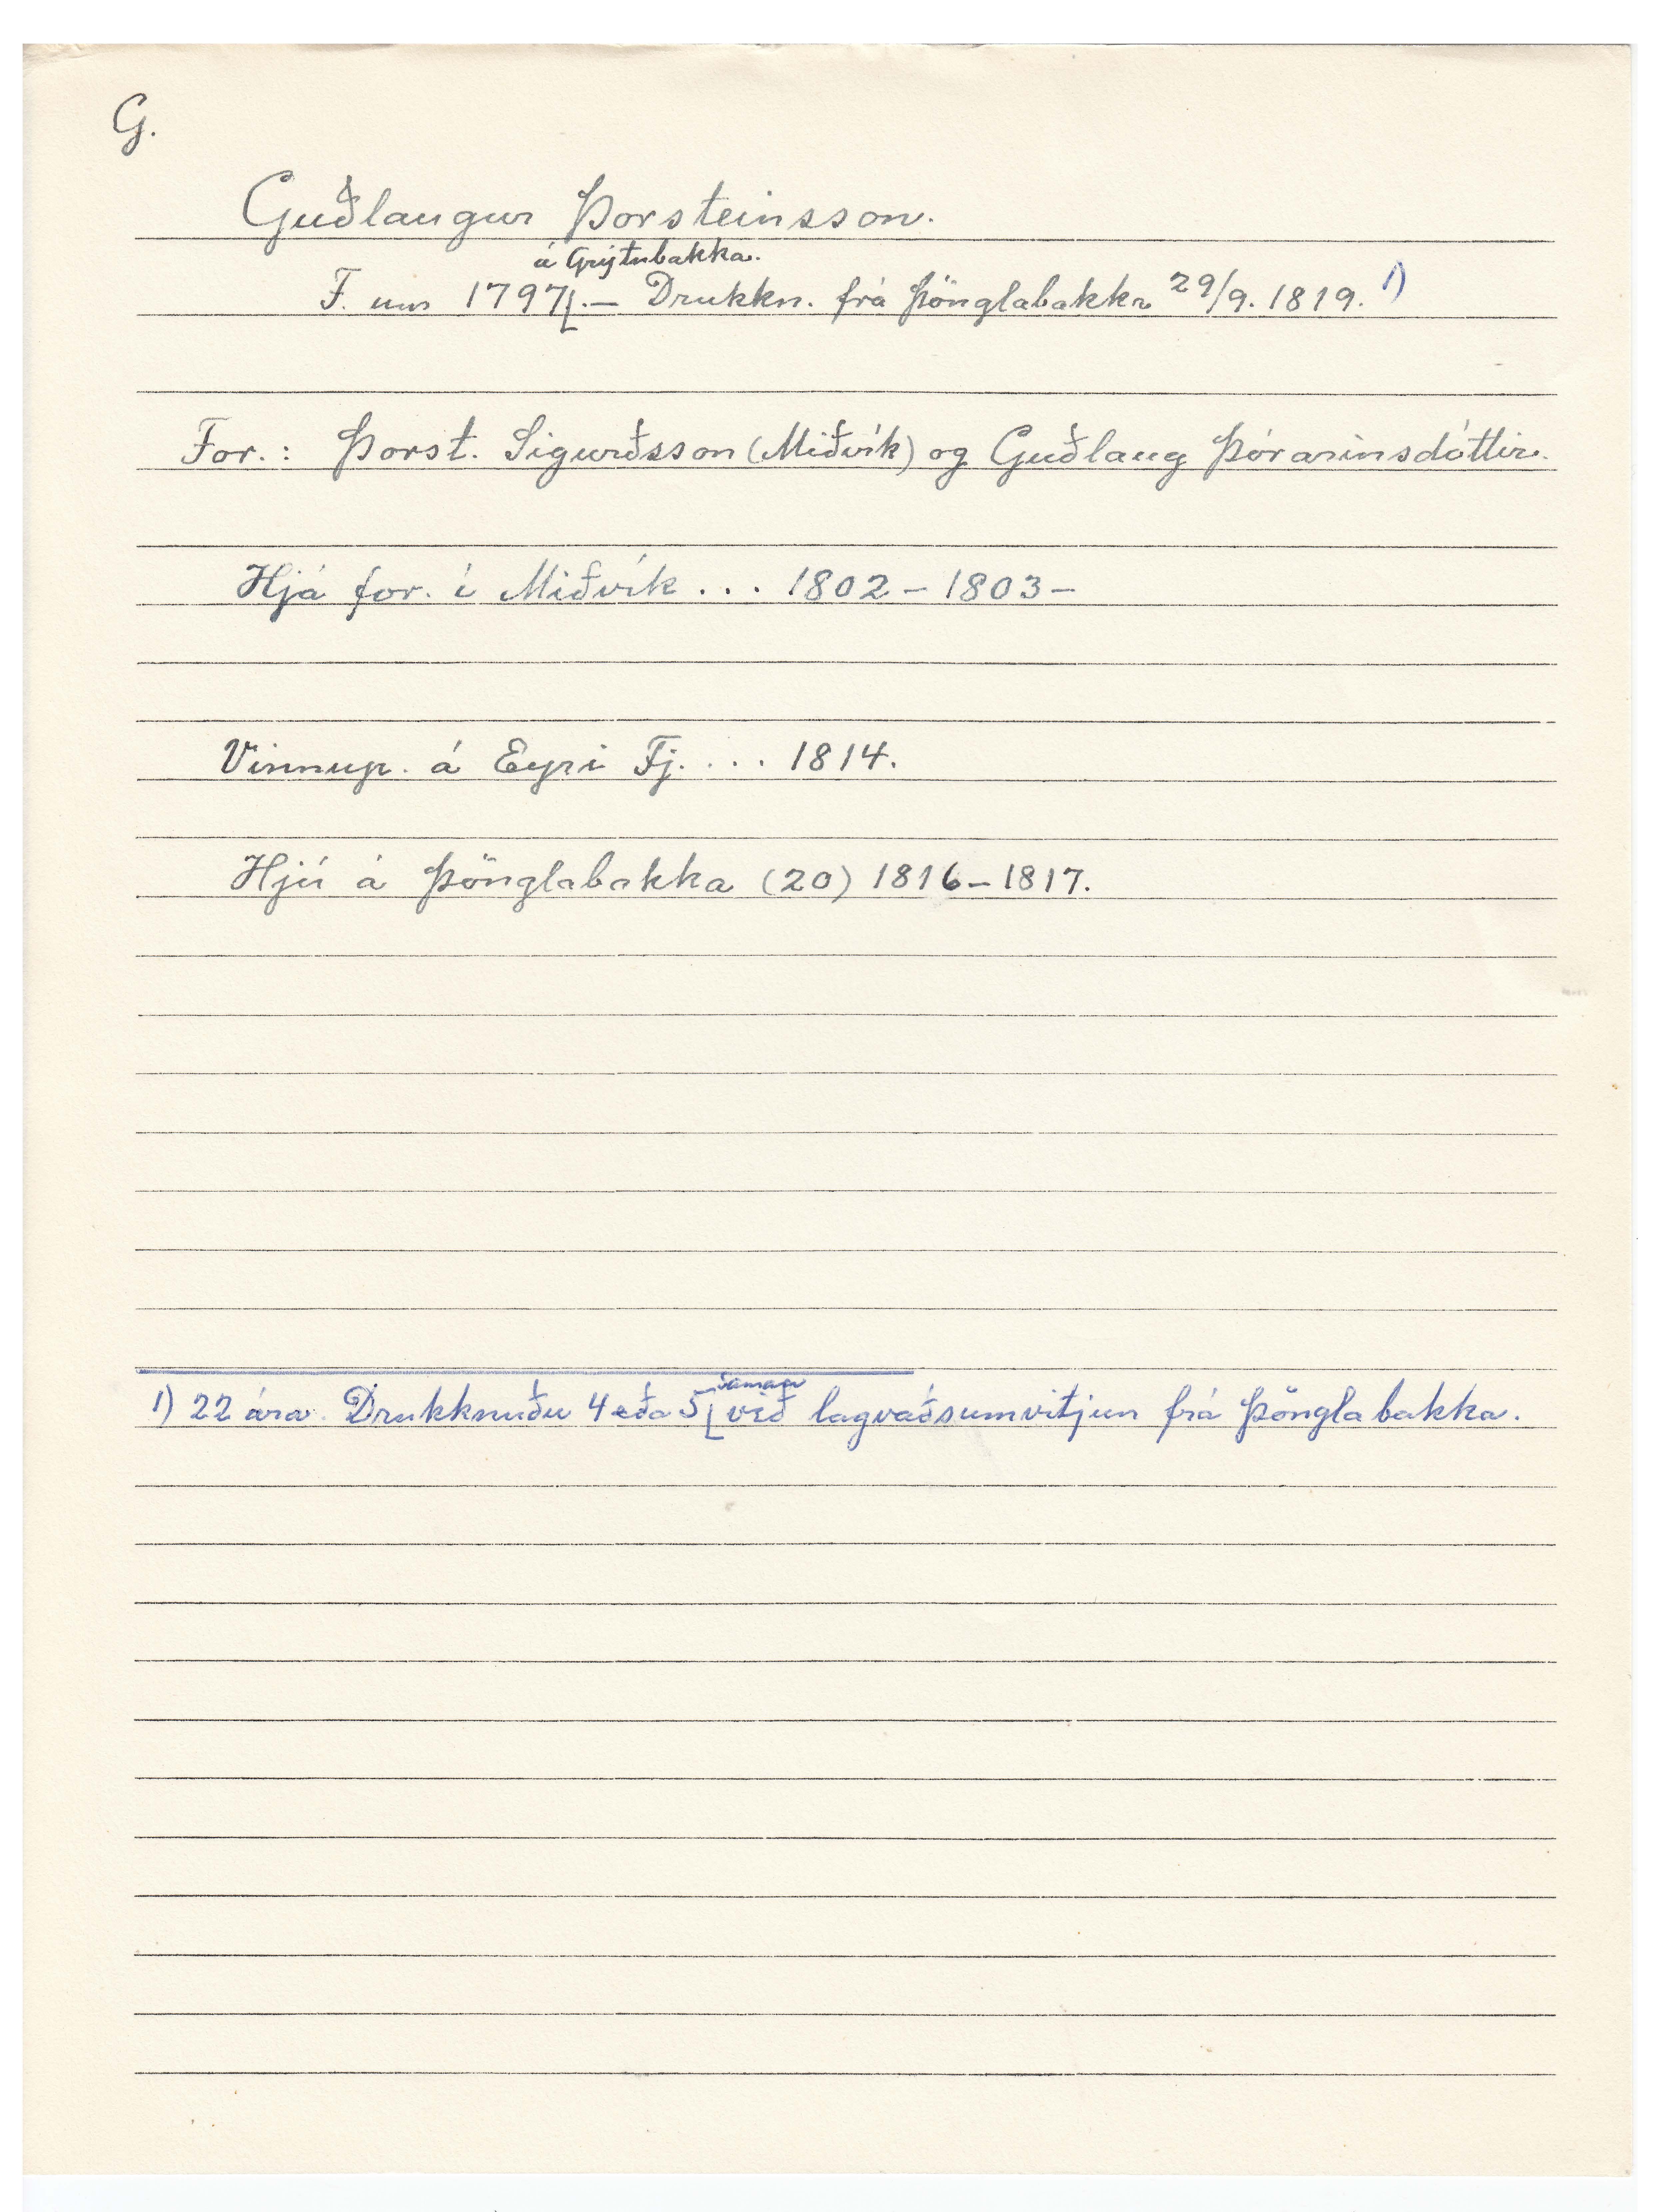 G.
Guðlaugur Þorsteinsson.
á Grýtubakka.
F. um 1797⌊.— Drukkn. frá Þönglabakka 29/9. 1819. 1)
For.: Þorst. Sigurðsson (Miðvík) og Guðlaug Þórarinsdóttir.
Hjá for. í Miðvík ... 1802 – 1803 –
Vinnup. á Eyri Fj. ... 1814.
Hjú á Þönglabakka (20) 1816 – 1817.
saman
1) 22 ára. Drukknuðu 4 eða 5 ⌊ við lagvaðsumvitjun frá Þönglabakka.